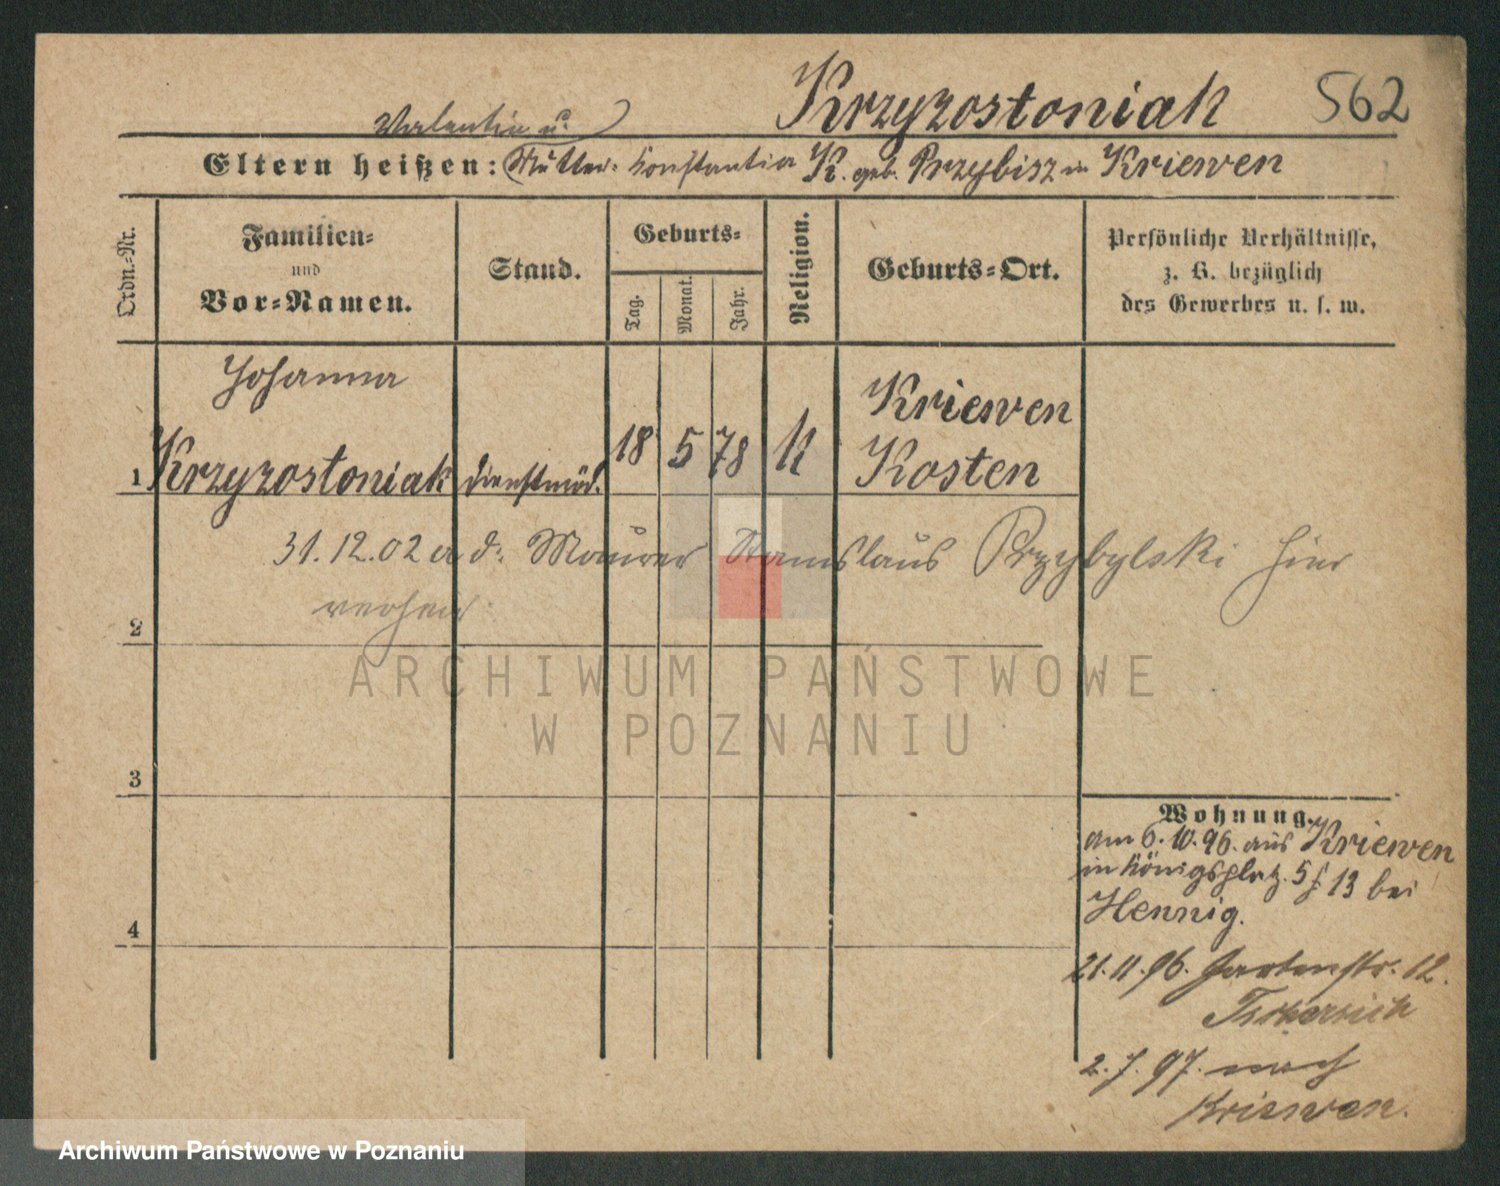 Krzyzostoniak 562
Valentin u.
Eltern heißen: Mutter: Konstantia K. geb. Przybisz in Kriewen
Ordn.-Nr.
Familien-
und
Vor-Namen.
Stand.
Geburts-
Tag.
Monat.
Jahr.
Religion.
Geburts-Ort.
Persönliche Verhältnisse,
z. B. bezüglich
des Gewerbes u. s. w.
Johanna
Kriewen
1 Krzyzostoniak dienstmäd. 18 5 78 K Kosten
31.12.02 a d: Maurer Stanislaus Przybylski hier
2 verheir:
ARCHIWUM PAŃSTWOWE
W POZNANIU
3
4
Wohnung.
am 6.10.96. aus Kriewen
in Königsplatz. 5 13 bei
Hennig.
21.11.96. Gartenstr. 12.
2.7.97. nach
Kriewen.
Archiwum Państwowe w Poznaniu